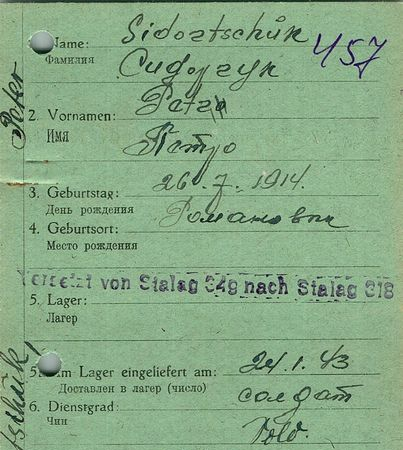 Name: Sidortschuk
Фамилия
Сидорчук
457
2. Vornamen: Petro
Имя
Петро
Peter
3. Geburtstag: 26.7.1914.
День рождения
4. Geburtsort: Романовка
Место рождения
Versetzt von Stalag 349 nach Stalag 318
5. Lager:
Лагер
5. Im Lager eingeliefert am: 24.1.43
Доставлен в лагер (число)
6. Dienstgrad: солдат
Чин